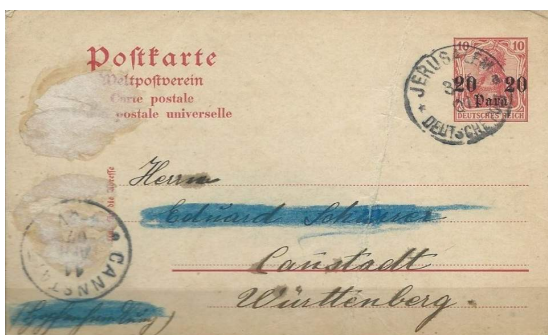 Postkarte
Weltpostverein
Carte postale
postale universelle
10 10
20 20
Para
DEUTSCHES REICH
JERUSALEM
DEUTSCHE
Herrn
Eduard
Canstadt
Württemberg.
CANNSTA
11